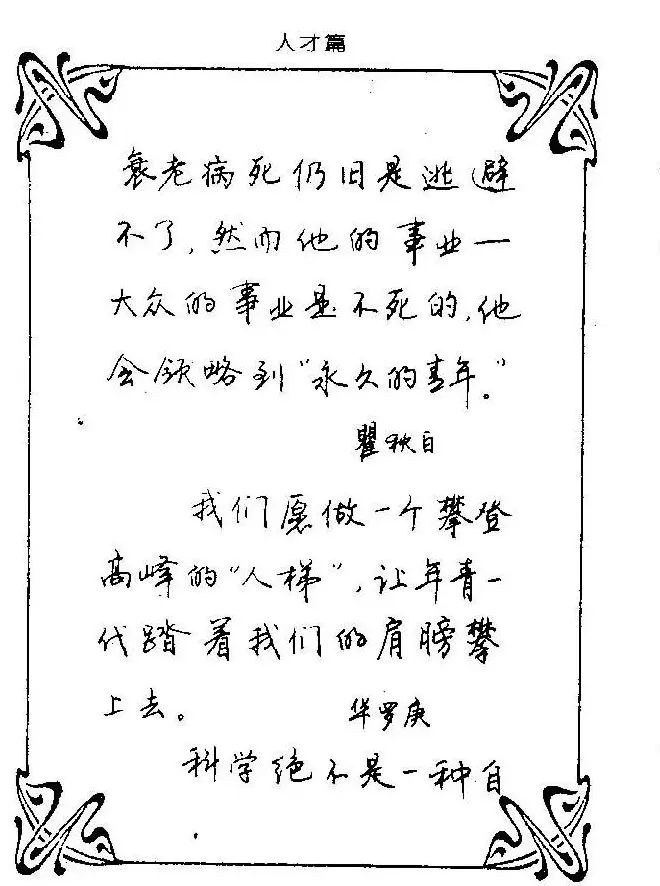 人才篇
衰老病死仍旧是逃避
不了,然而他的事业一
大众的事业是不死的,他
会领略到“永久的青年。”
瞿秋白
我们愿做一个攀登
高峰的“人梯”,让年青一
代踏着我们的肩膀攀
上去。
华罗庚
科学绝不是一种自